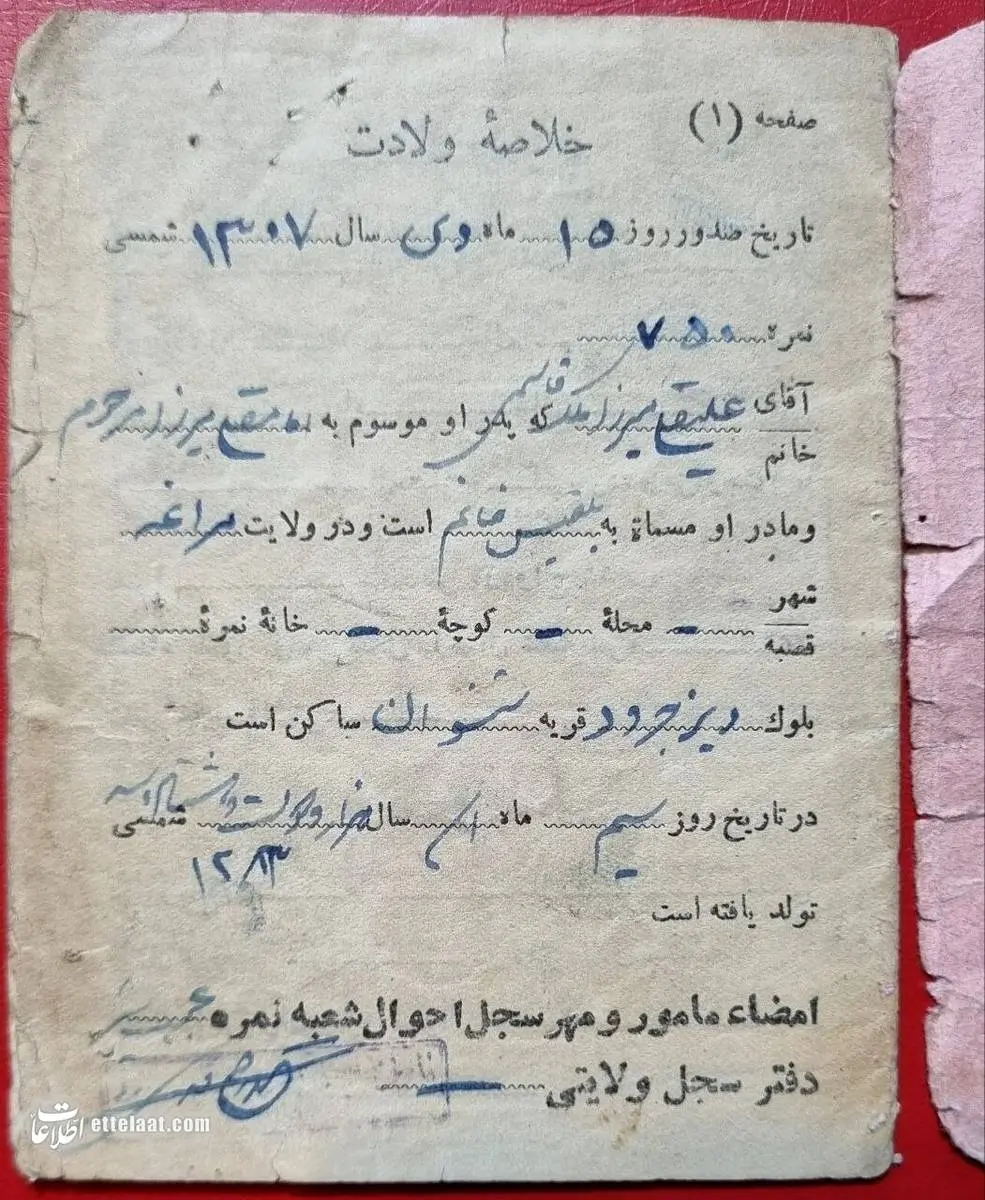 صفحه (۱)
خلاصهٔ ولادت
تاریخ صدور روز ۱۵ ماه دی سال ۱۳۰۷ شمسی
نمره ۷۵۰
آقای
خانم
علینقی میرزا ملک قاسمی که پدر او موسوم به امامقلی میرزا مرحوم
و مادر او مسماة به بلقیس خانم است و در ولایت مراغه
شهر
قصبه
– محلهٔ – کوچهٔ – خانهٔ نمرهٔ
بلوك دیزجرود قریه شیران ساکن است
در تاریخ روز سیم ماه سال هزار و دویست و هشتاد و سه شمسی
۱۲۸۳
تولد یافته است
امضاء مامور و مهر سجل احوال شعبه نمره
دفتر سجل ولایتی –
اطلاعات ettelaat.com